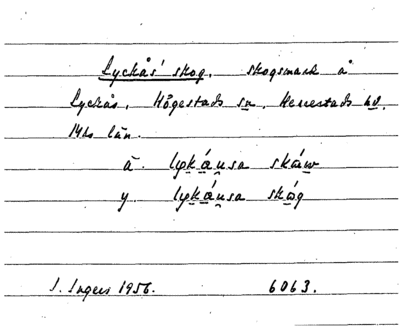 Lyckås' skog. skogsmark å
Lyckås, Högestads sn. Herrestads hd.
M-hs län.
ä. lykáusa skáw
y lykáusa skóg
I. Ingers 1956. 6063.